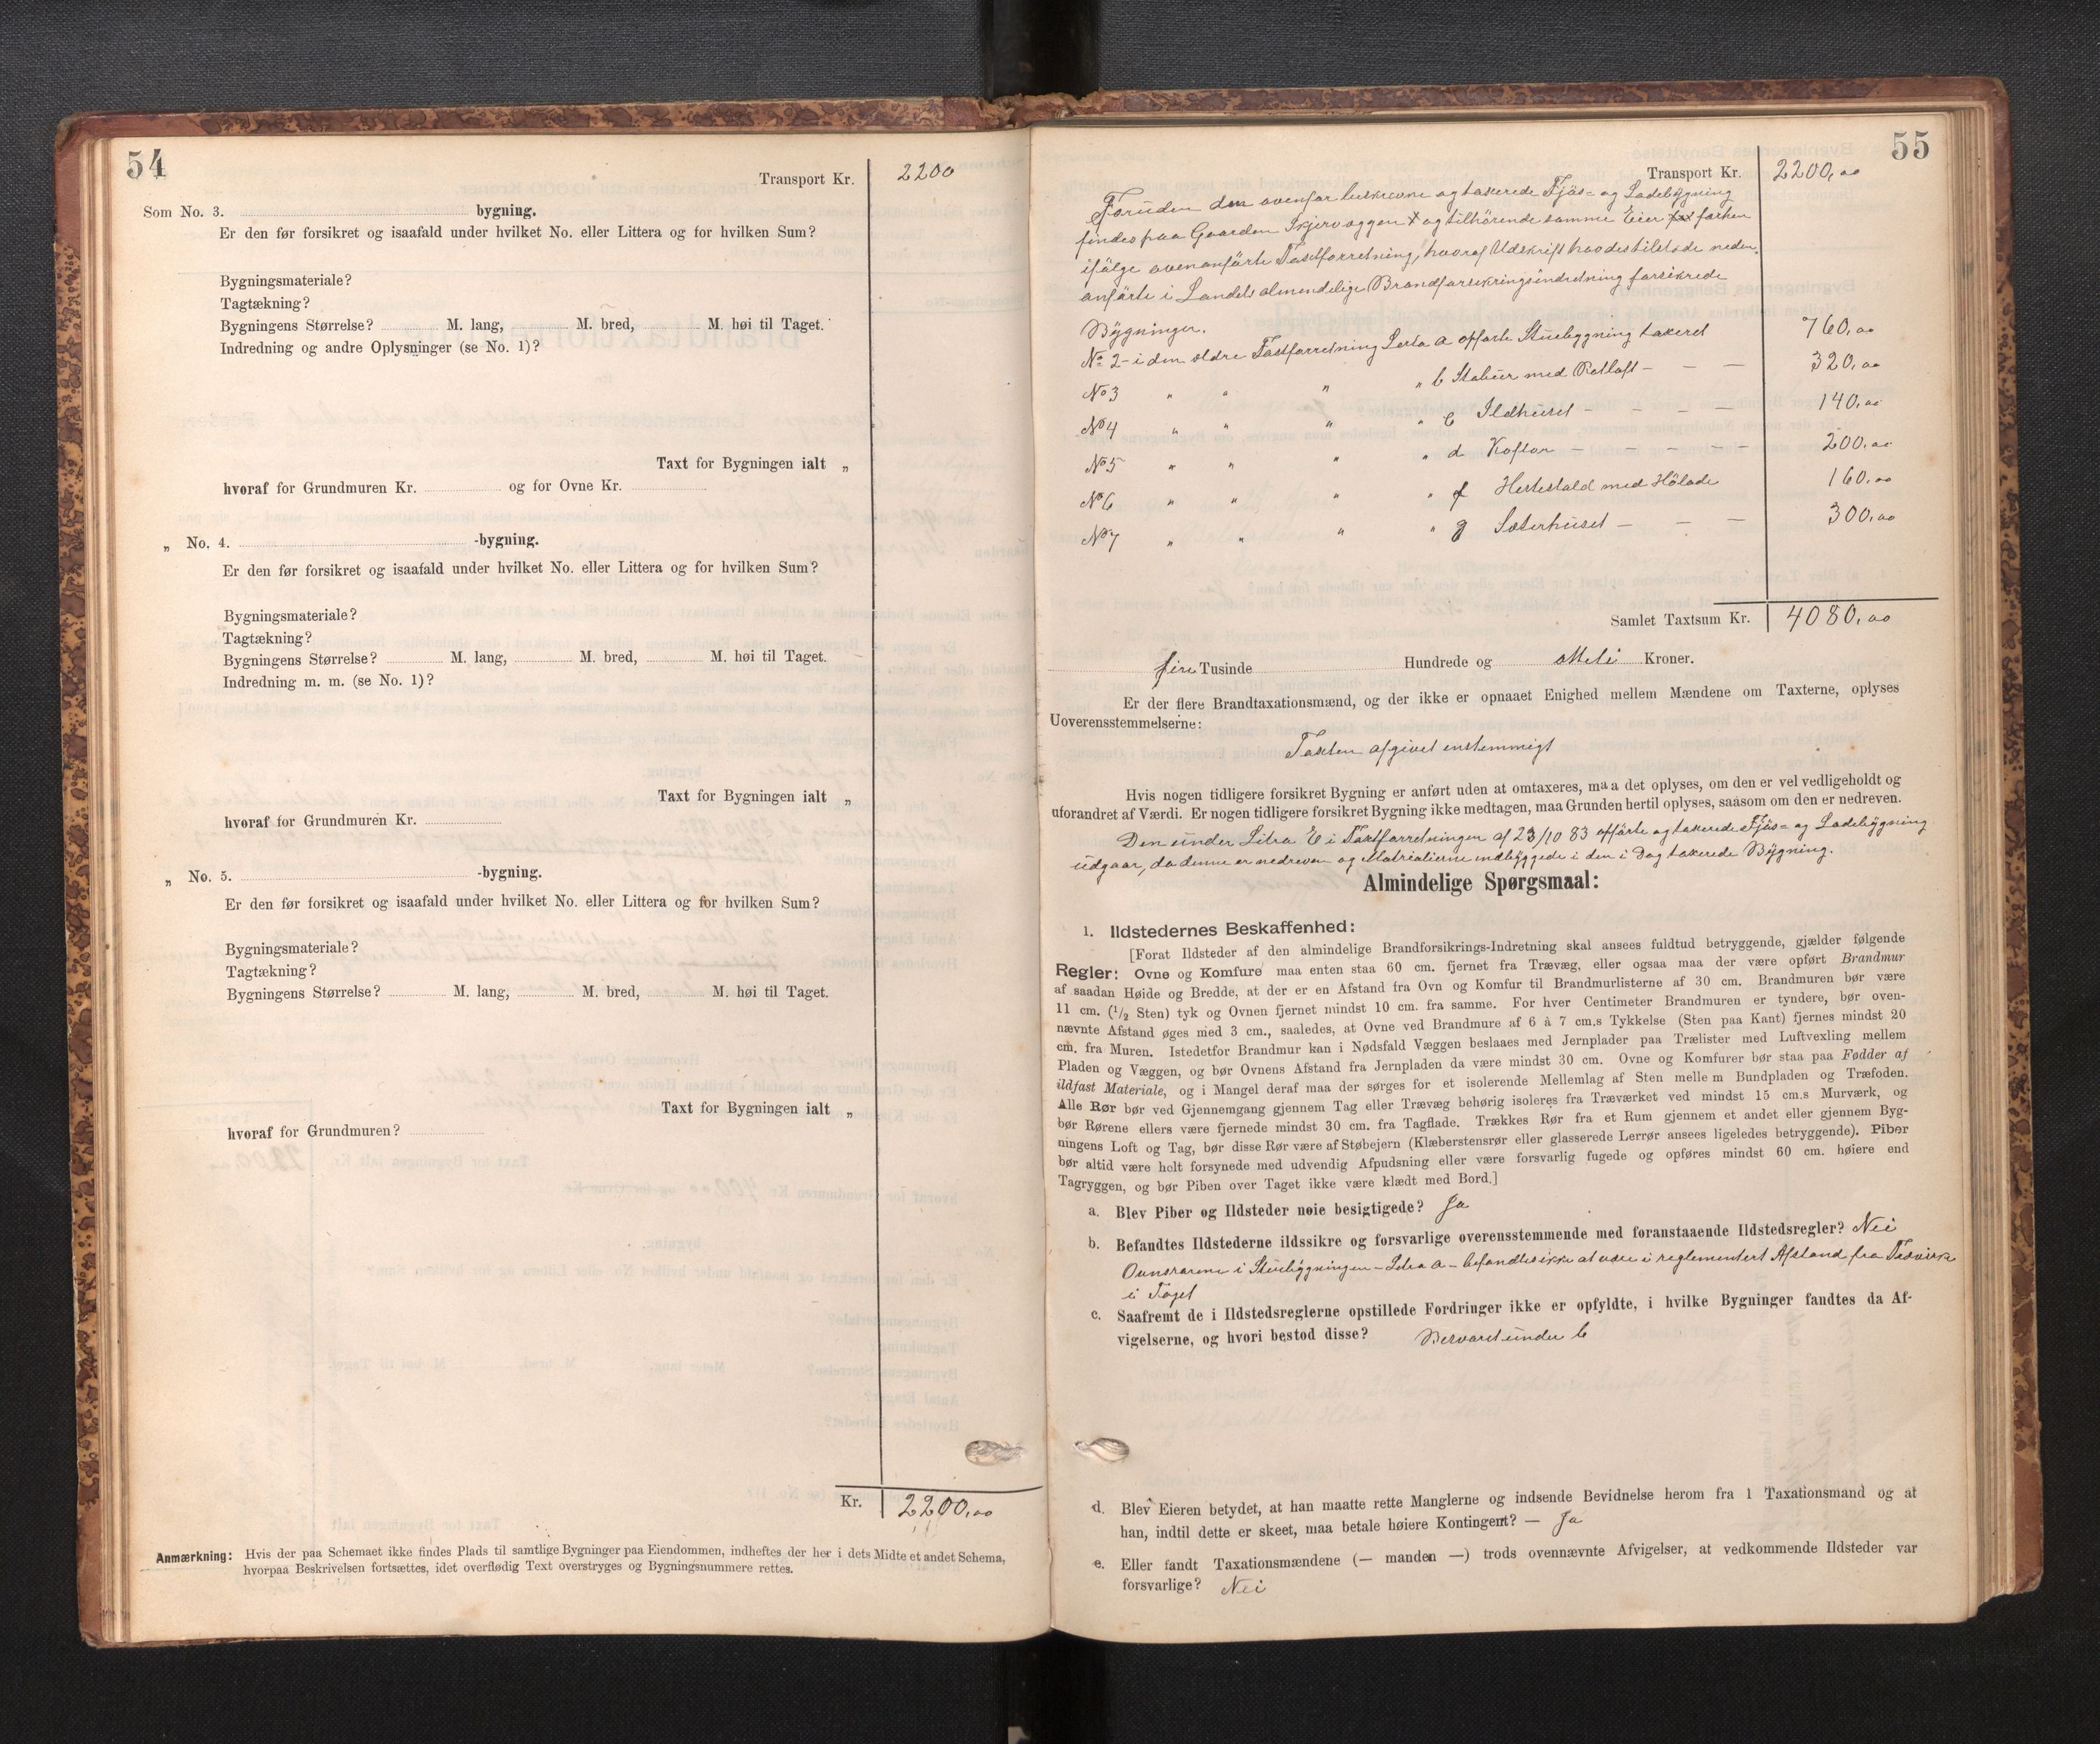 54
Transport Kr. 2200
Som No. 3. bygning.
Er den før forsikret og isaafald under hvilket No. eller Littera og for hvilken Sum?
Bygningsmateriale?
Tagtækning?
Bygningens Størrelse? M. lang, M. bred, M. høi til Taget.
Indredning og andre Oplysninger (se No. 1)?
Taxt for Bygningen ialt „
hvoraf for Grundmuren Kr. og for Ovne Kr.
„ No. 4. -bygning.
Er den før forsikret og isaafald under hvilket No. eller Littera og for hvilken Sum?
Bygningsmateriale?
Tagtækning?
Bygningens Størrelse? M. lang, M. bred, M. høi til Taget.
Indredning m. m. (se No. 1)?
Taxt for Bygningen ialt „
hvoraf for Grundmuren Kr.
„ No. 5. -bygning.
Er den før forsikret og isaafald under hvilket No. eller Littera og for hvilken Sum?
Bygningsmateriale?
Tagtækning?
Bygningens Størrelse? M. lang, M. bred, M. høi til Taget.
Taxt for Bygningen ialt „
hvoraf for Grundmuren?
Kr. 2200,00
Anmærkning: Hvis der paa Schemaet ikke findes Plads til samtlige Bygninger paa Eiendommen, indheftes der her i dets Midte et andet Schema,
hvorpaa Beskrivelsen fortsættes, idet overflødig Text overstryges og Bygningsnummere rettes.
55
Transport Kr. 2200,00
Foruden den ovenfor beskrevne og taxerede Fjøs- og Ladebygning
findes paa Gaarden Skjervaggen og tilhørende samme Eier forhen
ifølge ovenanførte Taxtforretning, hvoraf Udskrift havdes tilstede neden-
anførte i Landets almendelige Brandforsikringsindretning forsikrede
Bygninger.
No 2 - i den ældre Taxtforretning Litra a opførte Stuebygning taxeret 760,00
No 3 " " " " b Stabur med Rotloft - - - 320,00
No 4 " " " " c Ildhuset - - - - 140,00
No 5 " " " " d - - - - - 200,00
No 6 " " " " f Hestestald med Hölade 160,00
No 7 " " " " g Sæterhuset - - - 300,00
Samlet Taxtsum Kr. 4080,00
fire Tusinde Hundrede og otteti Kroner.
Er der flere Brandtaxationsmænd, og der ikke er opnaaet Enighed mellem Mændene om Taxterne, oplyses
Uoverensstemmelserne:
Taxten afgivet enstemmigt
Hvis nogen tidligere forsikret Bygning er anført uden at omtaxeres, maa det oplyses, om den er vel vedligeholdt og
uforandret af Værdi. Er nogen tidligere forsikret Bygning ikke medtagen, maa Grunden hertil oplyses, saasom om den er nedreven.
Den under Litra E i Taxtforretningen af 23/10 83 opførte og taxerede Fjøs- og Ladebygning
udgaar, da denne er nedreven og Matrialierne indbyggede i den i Dag taxerede Bygning.
Almindelige Spørgsmaal:
1. Ildstedernes Beskaffenhed:
[Forat Ildsteder af den almindelige Brandforsikrings-Indretning skal ansees fuldtud betryggende, gjælder følgende
Regler: Ovne og Komfure maa enten staa 60 cm. fjernet fra Trævæg, eller ogsaa maa der være opført Brandmur
af saadan Høide og Bredde, at der er en Afstand fra Ovn og Komfur til Brandmurlisterne af 30 cm. Brandmuren bør være
11 cm. (1/2 Sten) tyk og Ovnen fjernet mindst 10 cm. fra samme. For hver Centimeter Brandmuren er tyndere, bør oven-
nævnte Afstand øges med 3 cm., saaledes, at Ovne ved Brandmure af 6 à 7 cm.s Tykkelse (Sten paa Kant) fjernes mindst 20
cm. fra Muren. Istedetfor Brandmur kan i Nødsfald Væggen beslaaes med Jernplader paa Trælister med Luftvexling mellem
Pladen og Væggen, og bør Ovnens Afstand fra Jernpladen da være mindst 30 cm. Ovne og Komfurer bør staa paa Fødder af
ildfast Materiale, og i Mangel deraf maa der sørges for et isolerende Mellemlag af Sten mellem Bundpladen og Træfoden.
Alle Rør bør ved Gjennemgang gjennem Tag eller Trævæg behørig isoleres fra Træværket ved mindst 15 cm.s Murværk, og
bør Rørene ellers være fjernede mindst 30 cm. fra Tagflade. Trækkes Rør fra et Rum gjennem et andet eller gjennem Byg-
ningens Loft og Tag, bør disse Rør være af Støbejern (Klæberstensrør eller glasserede Lerrør ansees ligeledes betryggende). Piber
bør altid være helt forsynede med udvendig Afpudsning eller være forsvarlig fugede og opføres mindst 60 cm. høiere end
Tagryggen, og bør Piben over Taget ikke være klædt med Bord.]
a. Blev Piber og Ildsteder nøie besigtigede? Ja
b. Befandtes Ildstederne ildssikre og forsvarlige overensstemmende med foranstaaende Ildstedsregler? Nei
Ovnsrørene i Stuebygningen - Litra a - befandtes ikke at være i reglementert Afstand fra Trævirke
i Taget
c. Saafremt de i Ildstedsreglerne opstillede Fordringer ikke er opfyldte, i hvilke Bygninger fandtes da Af-
vigelserne, og hvori bestod disse? Besvaret under b
d. Blev Eieren betydet, at han maatte rette Manglerne og indsende Bevidnelse herom fra 1 Taxationsmand og at
han, indtil dette er skeet, maa betale høiere Kontingent? — Ja
e. Eller fandt Taxationsmændene (— manden —) trods ovennævnte Afvigelser, at vedkommende Ildsteder var
forsvarlige? Nei